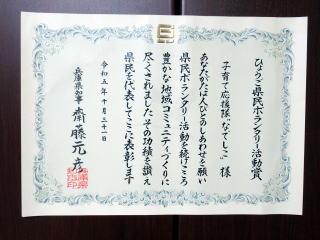 ひょうご県民ボランタリー活動賞
子育て応援隊“なでしこ” 様
あなたがたは人びとのしあわせを願い
ボランタリー活動を続けこころ
豊かな地域コミュニティづくりに
尽くされましたその功績を讃え
県民を代表してここに表彰します
令和五年十月三十一日
兵庫県知事 齋藤元彦